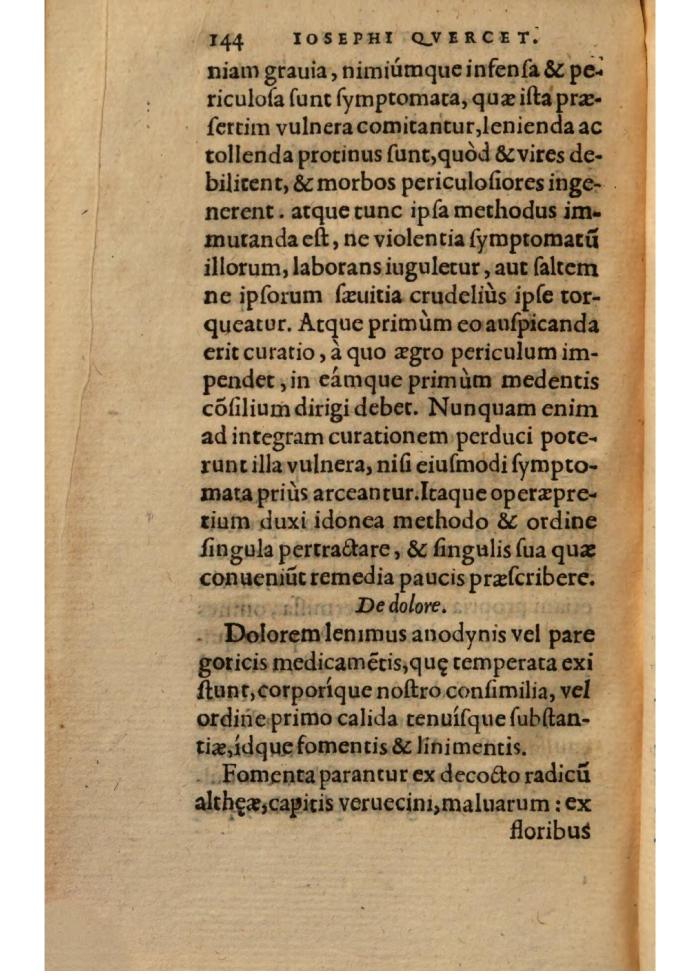 144 IOSEPHI QVERCET.
niam grauia, nimiúmque infenſa & pe-
riculoſa ſunt ſymptomata, quæ iſta præ-
ſertim vulnera comitantur, lenienda ac
tollenda protinus ſunt, quòd & vires de-
bilitent, & morbos periculoſiores inge-
nerent. atque tunc ipſa methodus im-
mutanda eſt, ne violentia ſymptomatũ
illorum, laborans iuguletur, aut ſaltem
ne ipſorum ſæuitia crudeliùs ipſe tor-
queatur. Atque primùm eo auſpicanda
erit curatio, à quo ægro periculum im-
pendet, in eámque primùm medentis
cõſilium dirigi debet. Nunquam enim
ad integram curationem perduci pote-
runt illa vulnera, niſi eiuſmodi ſympto-
mata priùs arceantur. Itaque operæpre-
tium duxi idonea methodo & ordine
ſingula pertractare, & ſingulis ſua quæ
conueniũt remedia paucis præſcribere.
De dolore.
Dolorem lenimus anodynis vel pare
goricis medicamẽtis, quę temperata exi
ſtunt, corporíque noſtro conſimilia, vel
ordine primo calida tenuíſque ſubſtan-
tiæ, ídque fomentis & linimentis.
Fomenta parantur ex decocto radicũ
althęæ, capitis veruecini, maluarum : ex
floribus